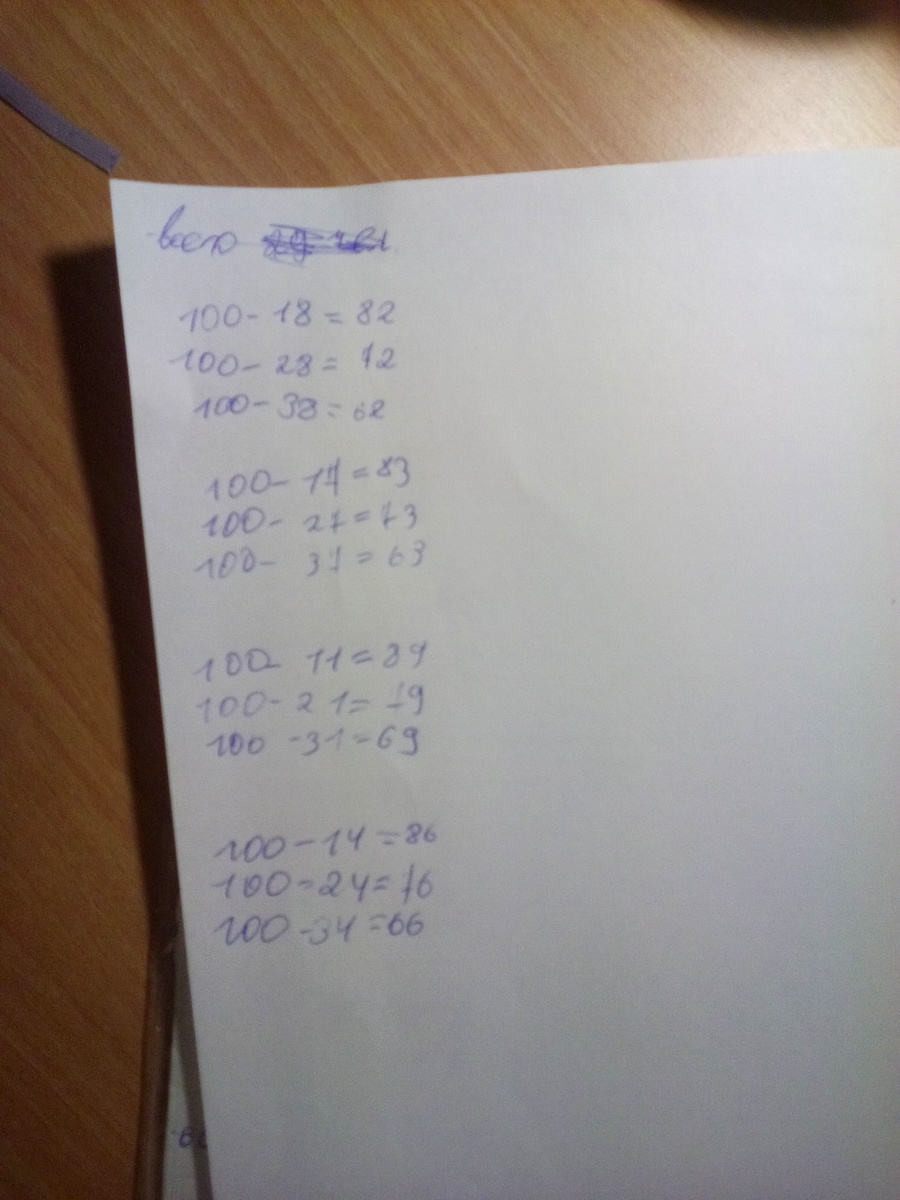 всего
100 - 18 = 82
100 - 28 = 72
100 - 38 = 62
100 - 17 = 83
100 - 27 = 73
100 - 37 = 63
100 - 11 = 89
100 - 21 = 79
100 - 31 = 69
100 - 14 = 86
100 - 24 = 76
100 - 34 = 66